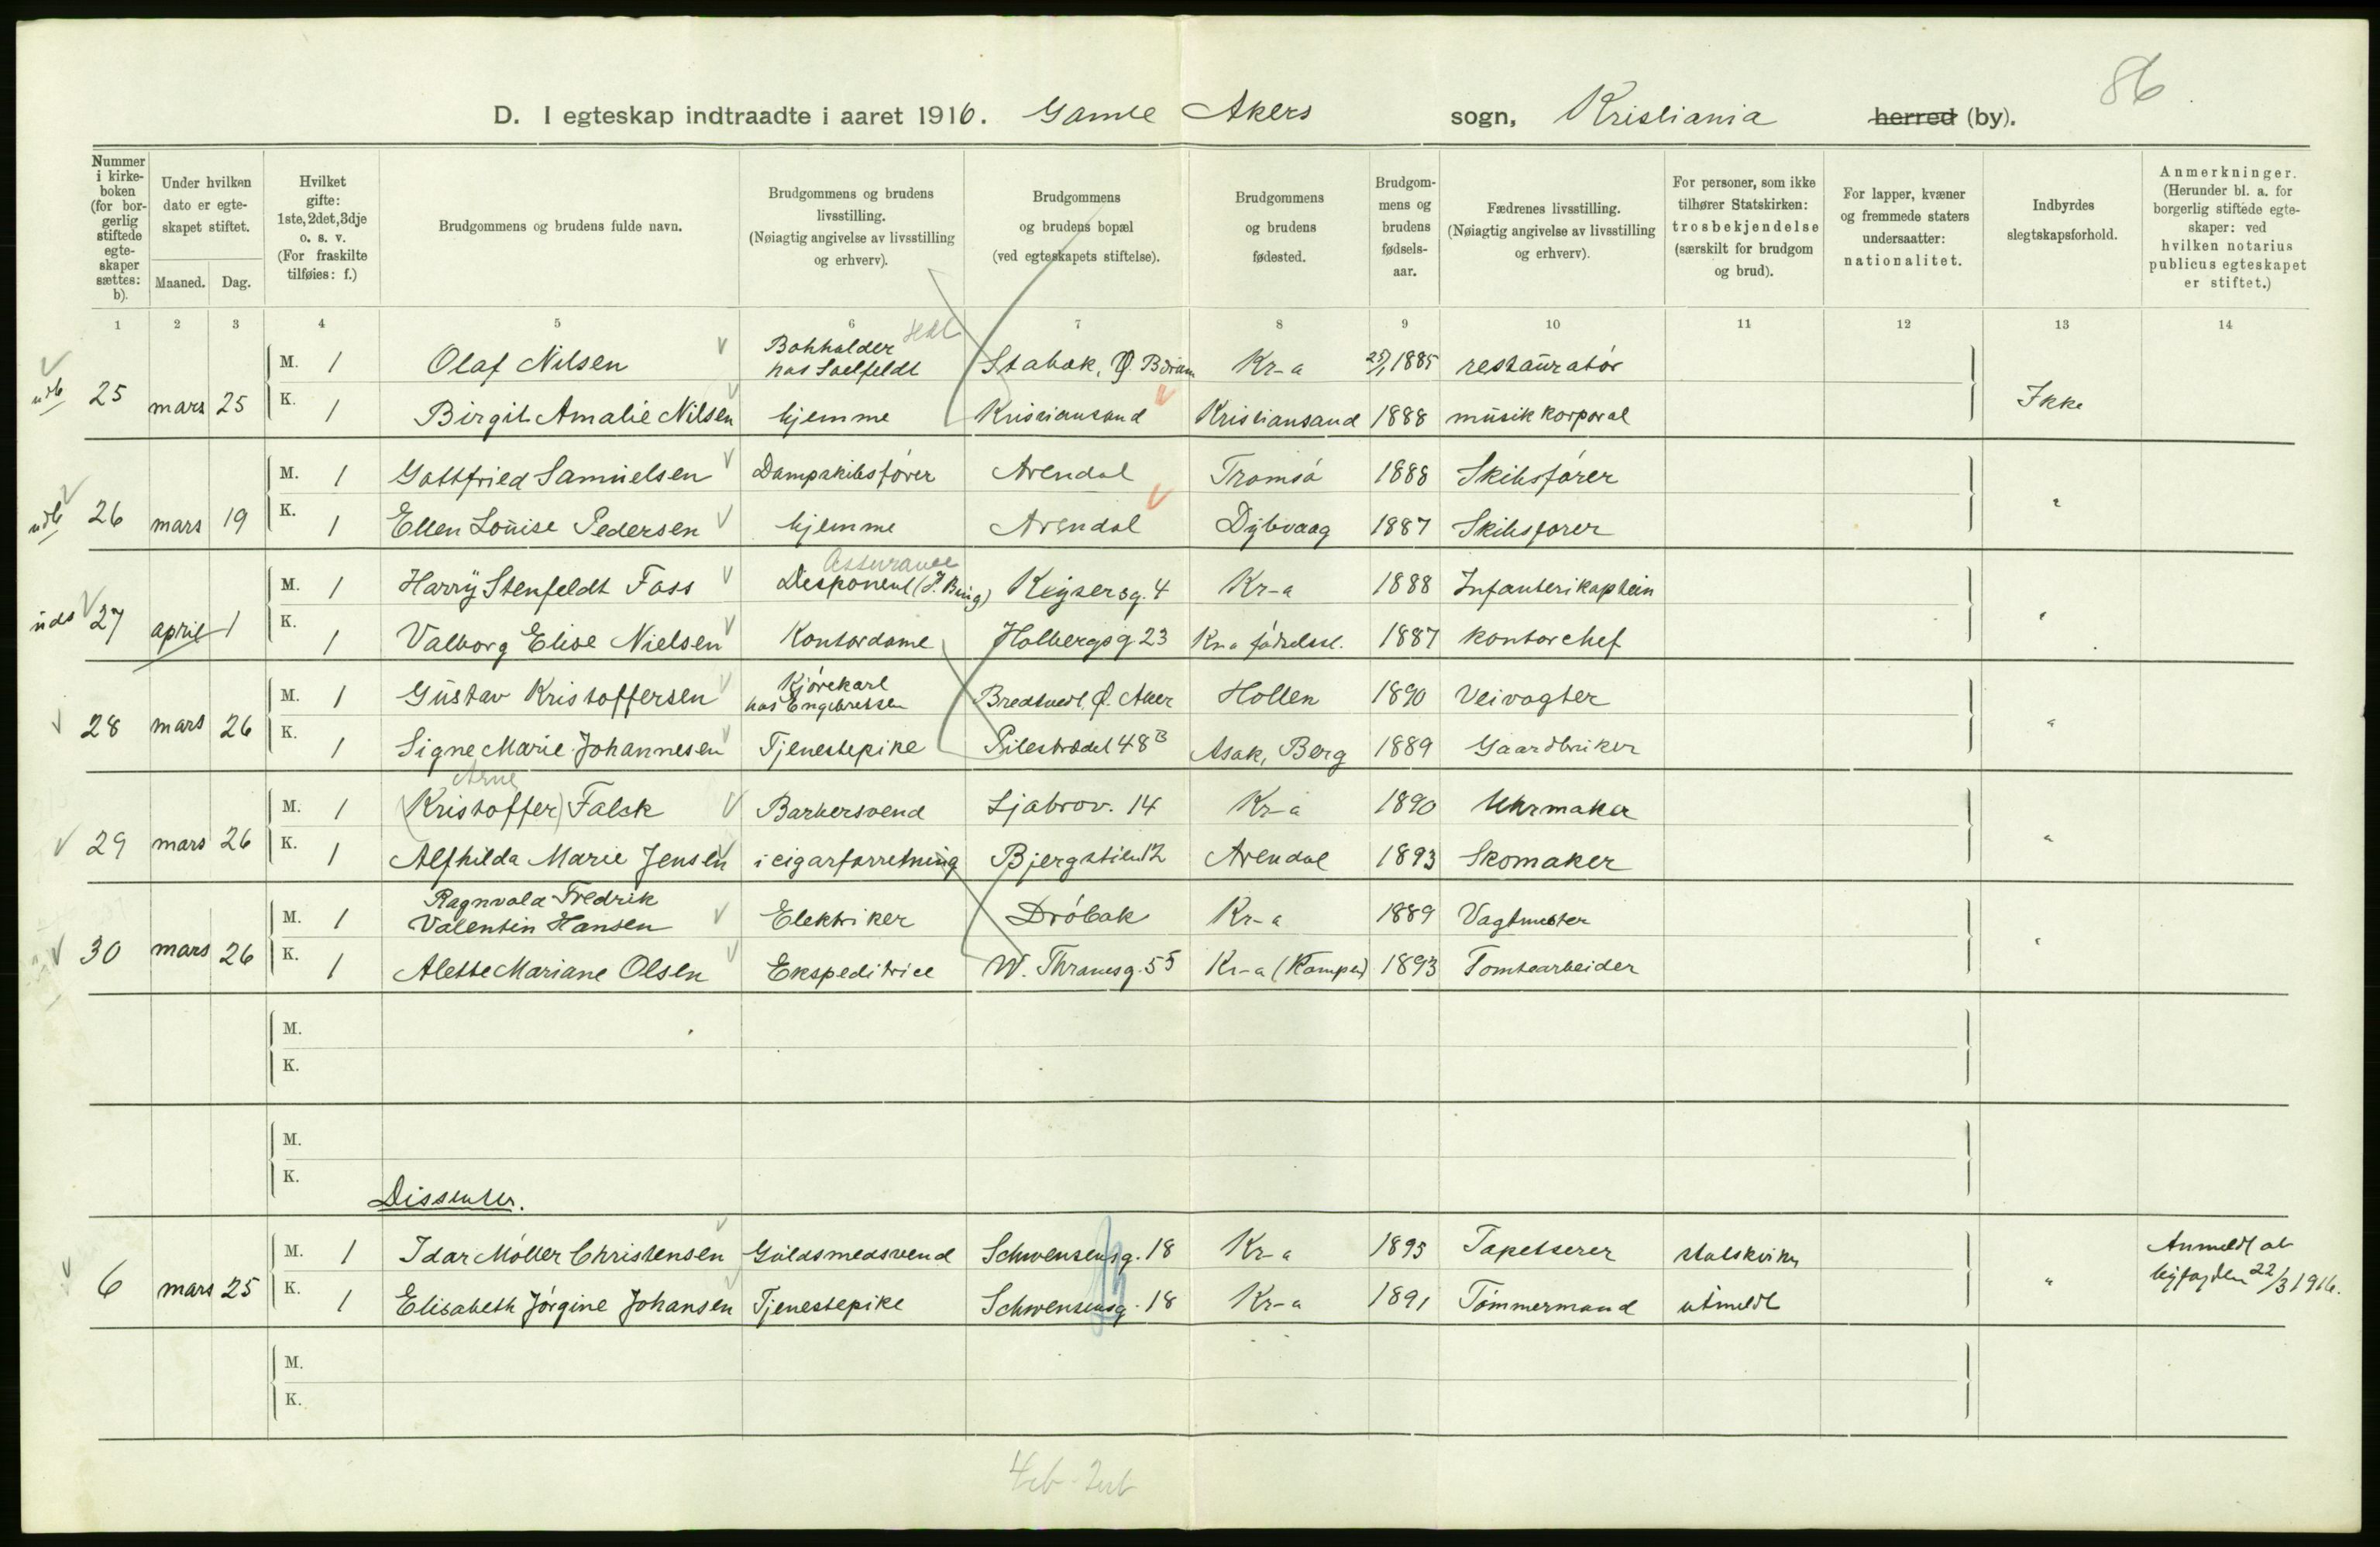 86
D. I egteskap indtraadte i aaret 1916. Gamle Akers sogn, Kristiania herred (by).
Nummer i kirke-boken (for bor-gerlig stiftede egte-skaper sættes: b).
Under hvilken dato er egte-skapet stiftet.
Maaned. Dag.
Hvilket gifte: 1ste, 2det, 3dje o. s. v. (For fraskilte tilføies: f.)
Brudgommens og brudens fulde navn.
Brudgommens og brudens livsstilling. (Nøiagtig angivelse av livsstilling og erhverv).
Brudgommens og brudens bopæl (ved egteskapets stiftelse).
Brudgommens og brudens fødested.
Brudgom-mens og brudens fødsels-aar.
Fædrenes livsstilling. (Nøiagtig angivelse av livsstilling og erhverv).
For personer, som ikke tilhører Statskirken: trosbekjendelse (særskilt for brudgom og brud).
For lapper, kvæner og fremmede staters undersaatter: nationalitet.
Indbyrdes slegtskapsforhold.
Anmerkninger. (Herunder bl. a. for borgerlig stiftede egte-skaper: ved hvilken notarius publicus egteskapet er stiftet.)
1 2 3 4 5 6 7 8 9 10 11 12 13 14
25 mars 25 M. 1 Olaf Nilsen Bokholder hos Saelfeldt Stabæk, Ø. Bærum Kr-a 25/1 1885 restauratør
K. 1 Birgit Amalie Nilsen hjemme Kristiansand Kristiansand 1888 musikkorporal Ikke
26 mars 19 M. 1 Gottfried Samuelsen Dampskibsfører Arendal Tromsø 1888 Skibsfører
K. 1 Ellen Louise Pedersen hjemme Arendal Dybvaag 1887 Skibsfører "
Assurance
27 april 1 M. 1 Harry Stenfeldt Foss Disponent (J. Bring) Keysersg. 4 Kr-a 1888 Infanterikaptein
K. 1 Valborg Elise Nielsen Kontordame Holbergsg 23 Kr-a fødselsst. 1887 kontorchef "
28 mars 26 M. 1 Gustav Kristoffersen Kjørekarl hos Engebretsen Bredtvedt, Ø. Aker Hollen 1890 Veivogter
K. 1 Signe Marie Johannesen Tjenestepike Pilestrædet 48B Asak, Berg 1889 Gaardbruker "
Arne
29 mars 26 M. 1 (Kristoffer) Falck Barbersvend Ljabrov. 14 Kr-a 1890 Uhrmaker
K. 1 Alfhilda Marie Jensen i cigarforretning Bjergstien 12 Arendal 1893 Skomaker "
30 mars 26 M. 1 Ragnvald Fredrik Valentin Hansen Elektriker Drøbak Kr-a 1889 Vagtmester
K. 1 Alette Mariane Olsen Ekspeditrice W. Thranesg. 55 Kr-a (Kampen) 1893 Tomtearbeider "
M.
K.
M.
K.
Dissenter.
6 mars 25 M. 1 Idar Møller Christensen Guldsmedsvend Schwensensg. 18 Kr-a 1895 Tapetserer statskirken Anmeldt at
K. 1 Elisabeth Jørgine Johansen Tjenestepike Schwensensg. 18 Kr-a 1891 Tømmermand utmeldt " byfogden 22/3 1916.
M.
K.